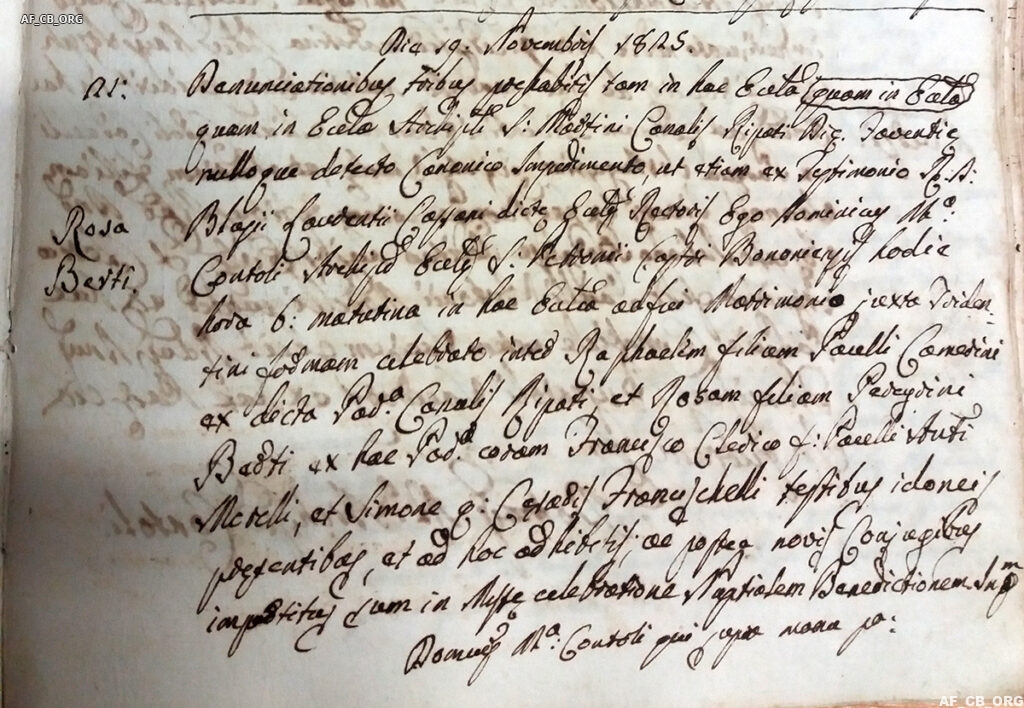 AF_CB_ORG
Die 19. Novembris 1825.
21:
Denunciationibus tribus prehabitis tam in hac Eccla quam in Eccla
quam in Eccla Archiplī S: Martini Canalis Ripati Dię. Faventię
nulloque detecto Canonico Impedimento, ut etiam ex Testimonio R. D:
Rosa
Berti.
Blasii Gaudentii Cassani dictę Eccles Rectoris Ego Dominicus Mª:
Contoli Archip Eccle S: Petronii Castri Bononiensis hodie
hora 6: matutina in hac Eccla adfui Matrimonio juxta Triden-
tini formam celebrato inter Raphaelem filium Paulli Camerini
ex dicta Par.ª Canalis Ripati, et Rosam filiam Peregrini
Berti ex hac Par.ª coram Francisco Clerico f: Paulli
Morelli, et Simone q: Franceschelli testibus idoneis
pręsentibus, et ad hoc adhibitis: ac postea novis Conjugibus
impertitus sum in Missę celebratione Nuptialem Benedictionem. In
Domcus Mª: Contoli qui supra manu pª:
AF_CB_ORG